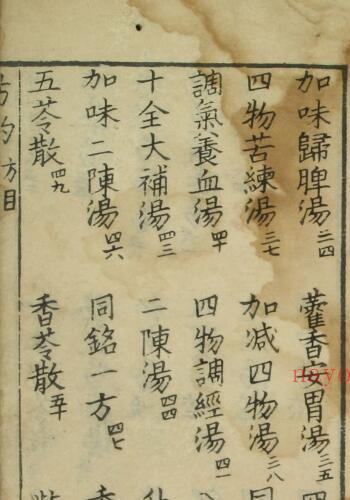 加味歸脾湯三四 藿香安胃湯三五
四物苦練湯三七 加减四物湯三八
調氣養血湯四十 四物調經湯四一
十全大補湯四三 二陳湯四四
加味二陳湯四六 同銘一方四七
五苓散四九 香苓散五十
方目
nayo